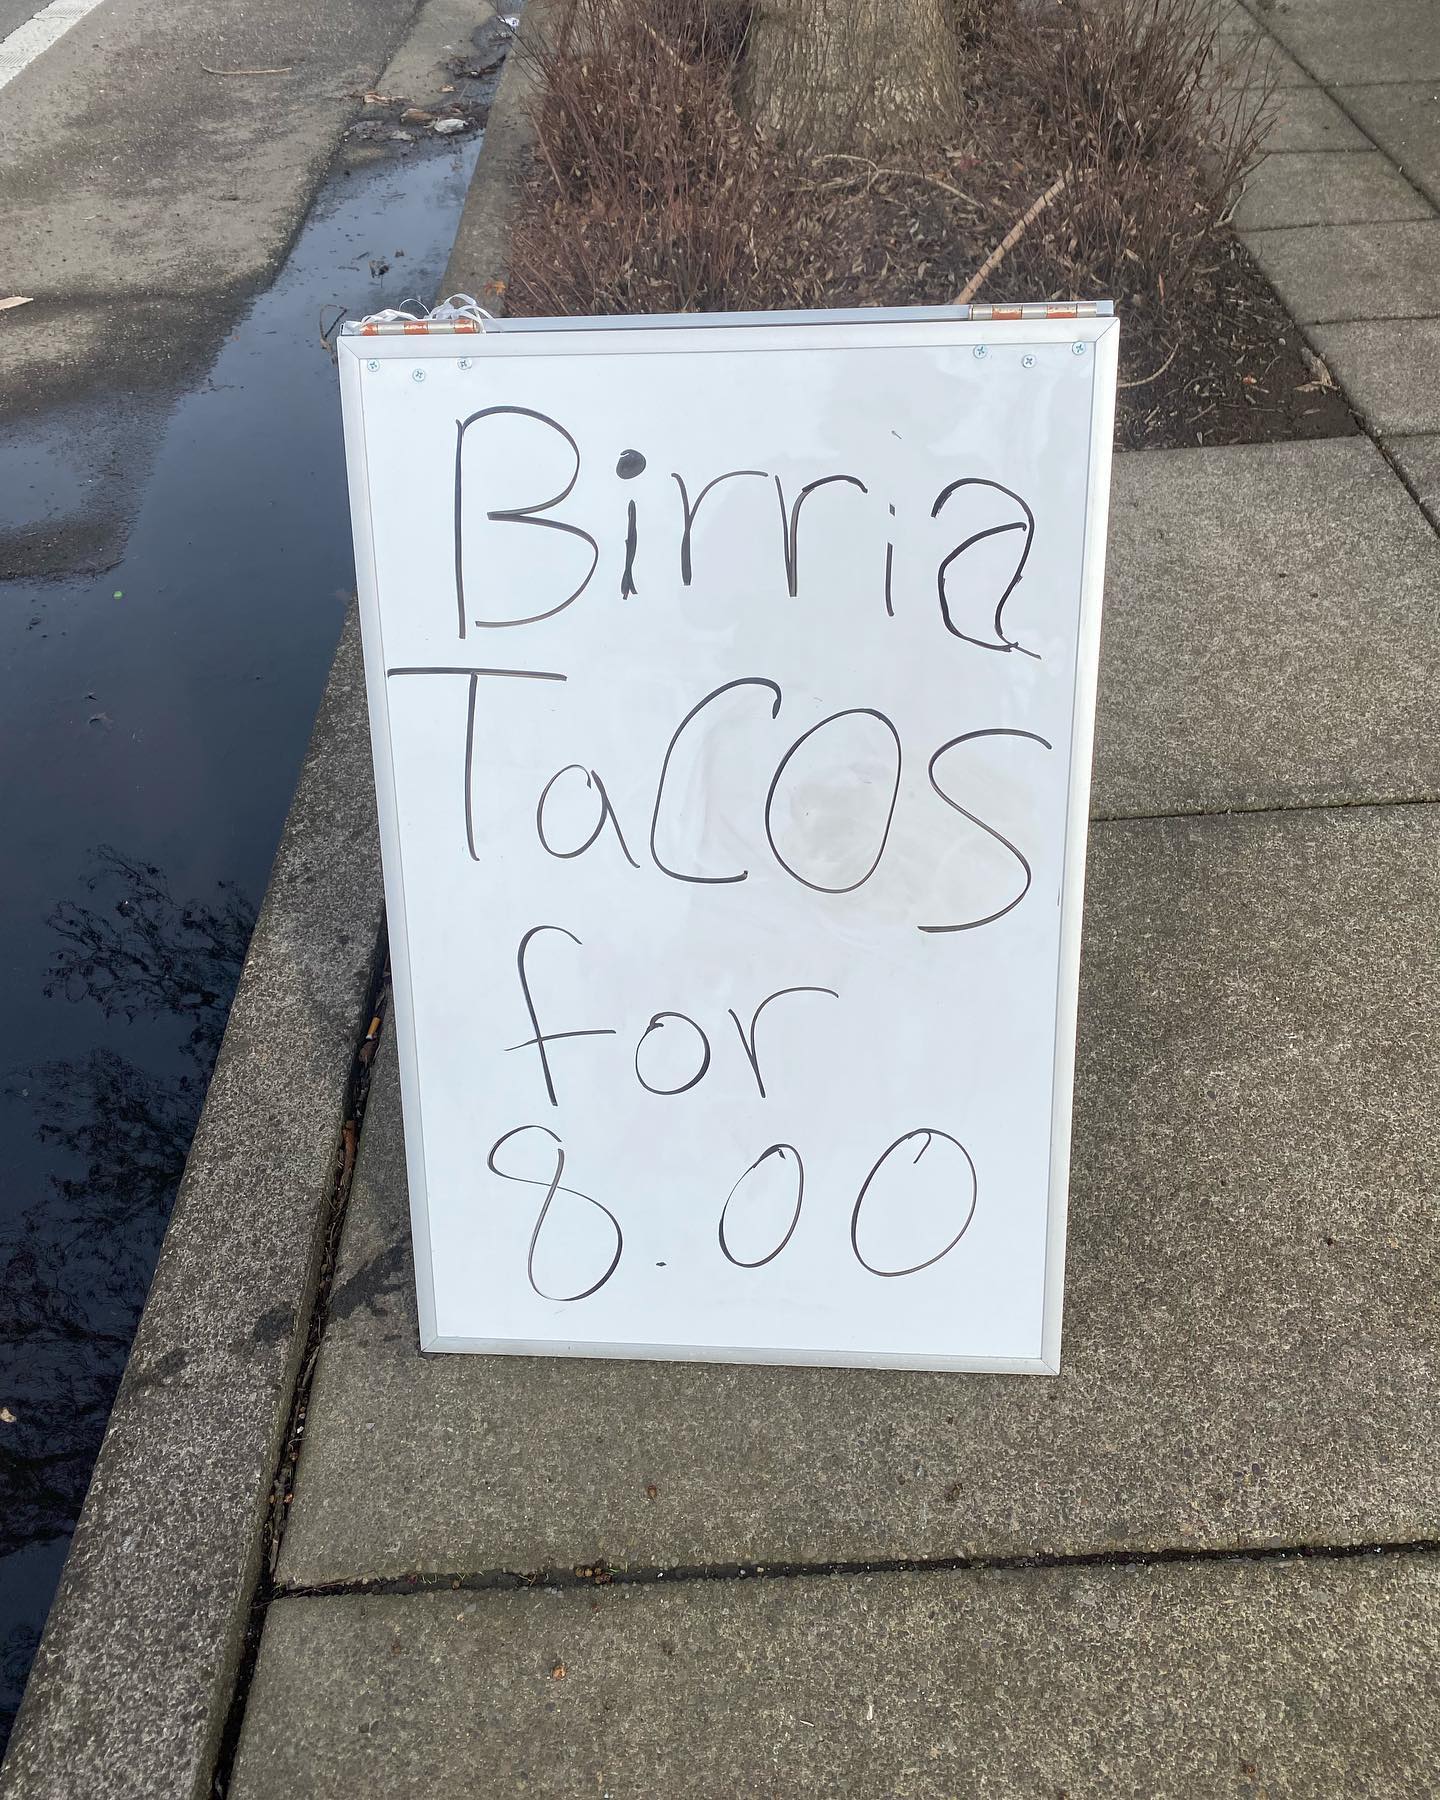 Birria
TaCOS
for
8.00